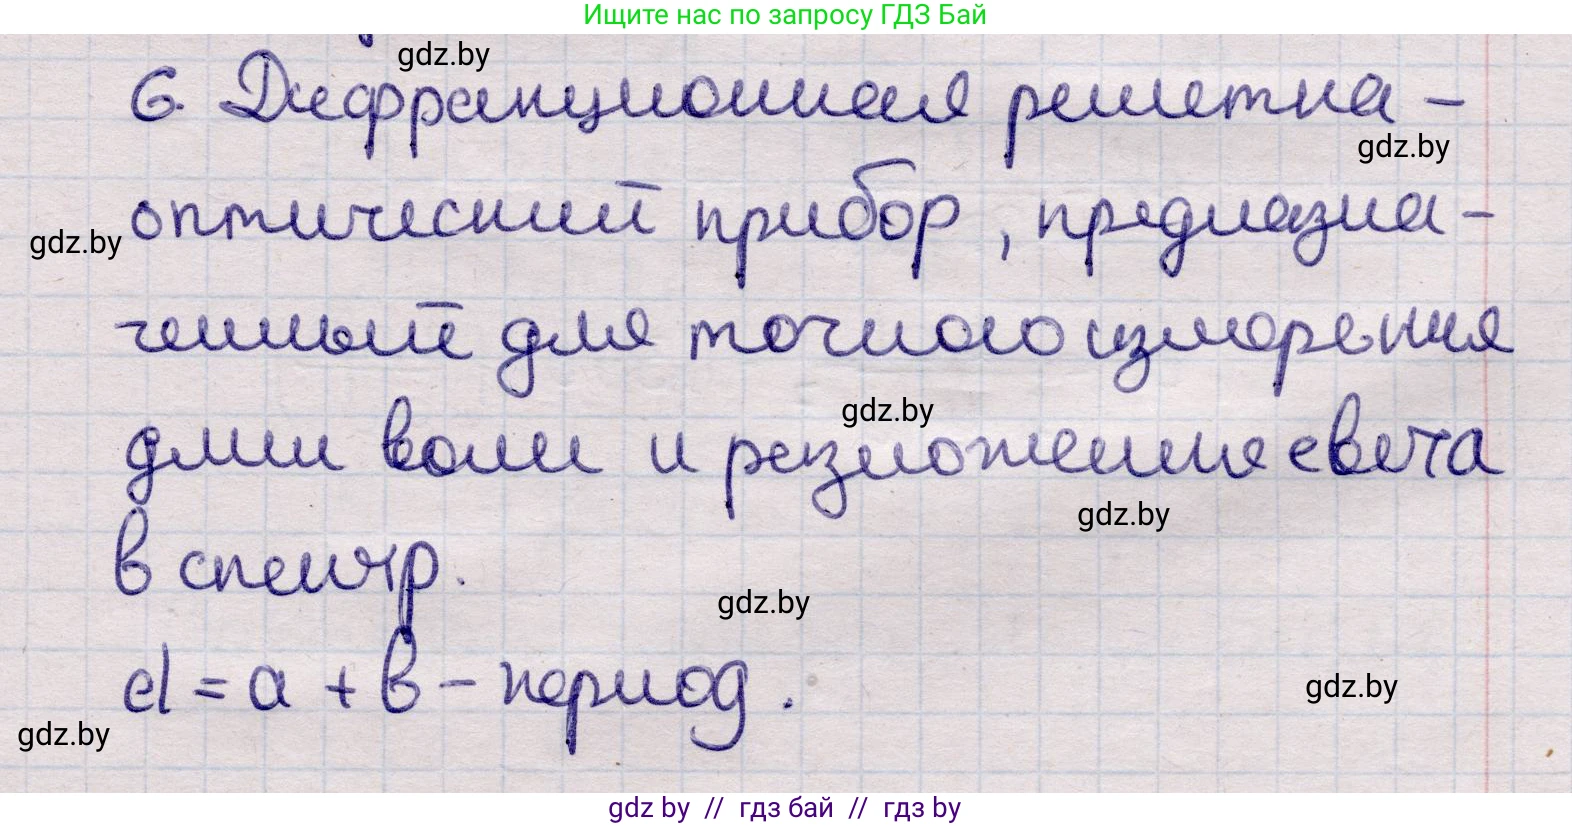 Ищите нас по запросу ГДЗ Бай
gdz.by
6. Дифракционная решетка -
gdz.by
оптический прибор, предназна-
gdz.by
ченный для точного измерения
gdz.by
длин волн и разложения света
gdz.by
в спектр.
gdz.by
d = a + b - период.
gdz.by
gdz.by
gdz by // гдз бай // гдз by